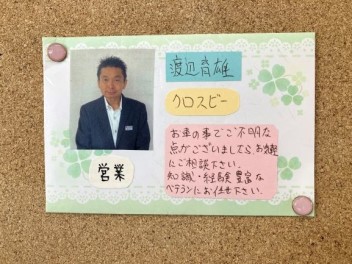 渡辺育雄
クロスビー
お車の事でご不明な
点がございましたら、お気軽
にご相談下さい。
知識・経験豊富な
ベテランにお任せ下さい。
営業